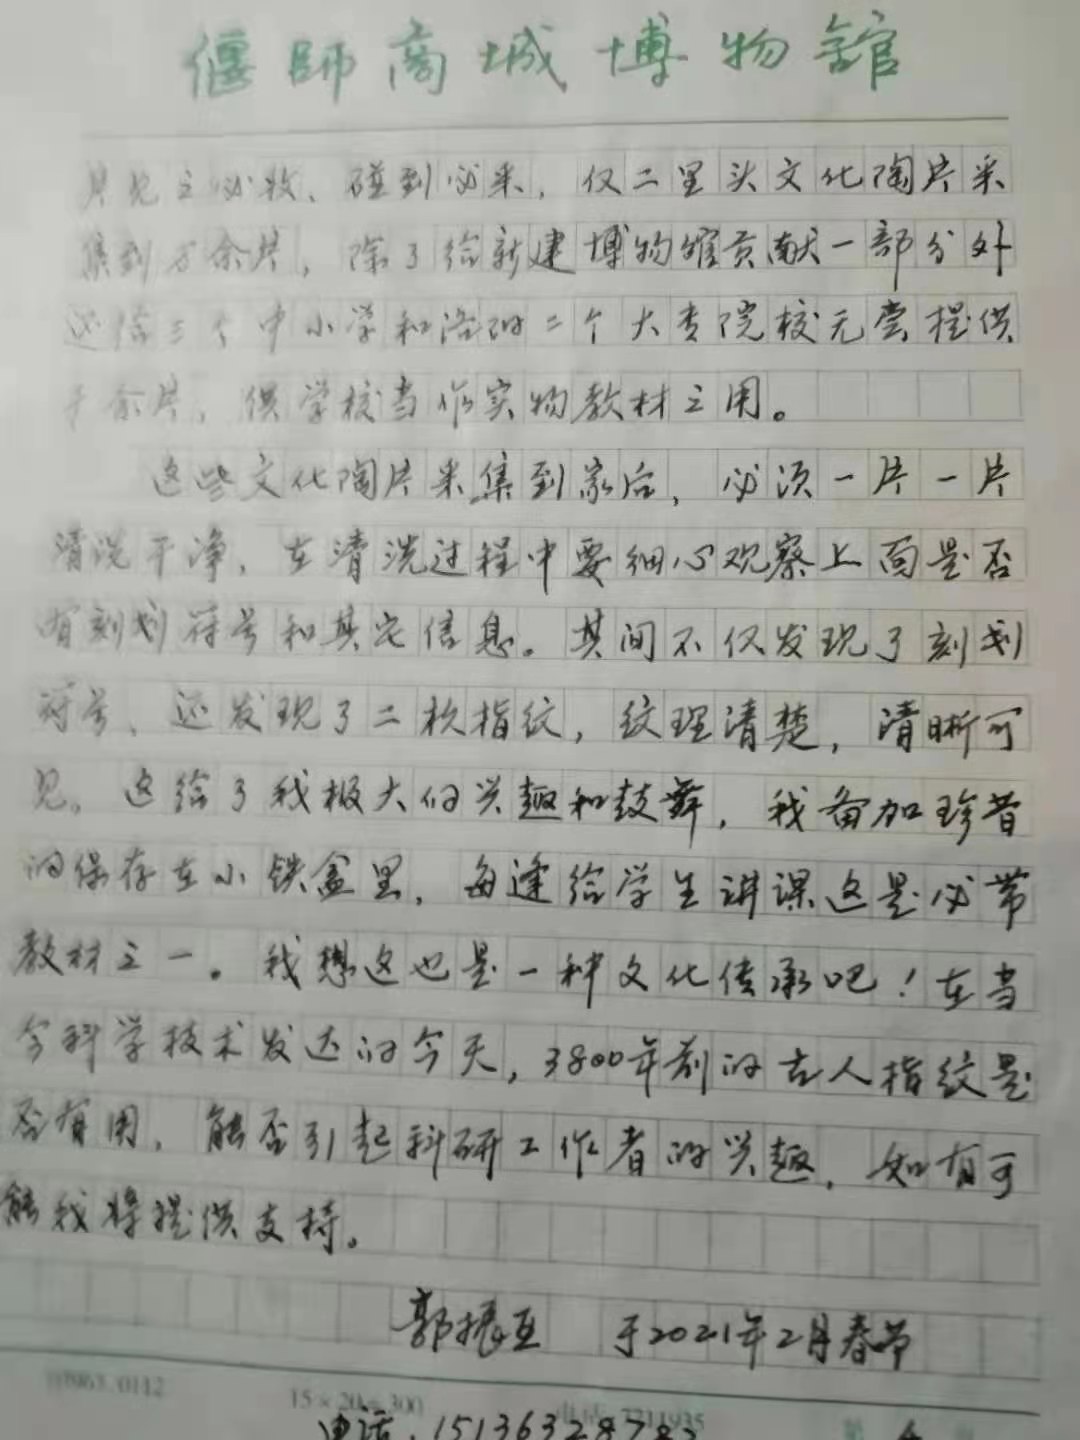 偃師商城博物館
见之必收、碰到必采，仅二里头文化陶片采
集到万余片，除了给新建博物馆贡献一部分外
还给三个中小学和洛阳二个大专院校无偿提供
千余片，供学校当作实物教材之用。
这些文化陶片采集到家后，必须一片一片
清洗干净，在清洗过程中要细心观察上面是否
有刻划符号和其它信息。其间不仅发现了刻划
符号、还发现了二枚指纹，纹理清楚，清晰可
见。这给了我极大的兴趣和鼓舞，我备加珍昔
的保存在小铁盒里，每逢给学生讲课这是必带
教材之一。我想这也是一种文化传承吧！在当
今科学技术发达的今天，3800年前的古人指纹是
否有用，能否引起科研工作者的兴趣，如有可
能我将提供支持。
郭振亚 于2021年2月春节
0112
15×20=300 电话
电话.151363287
第 4